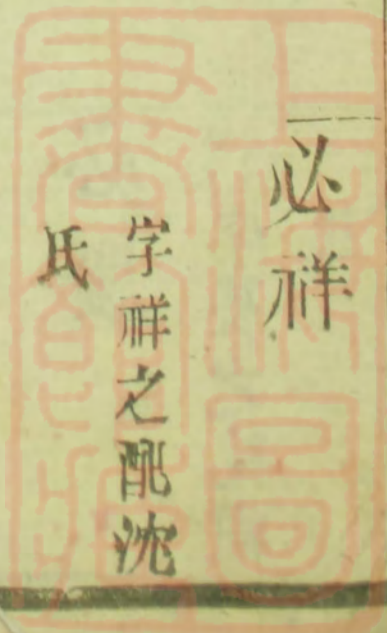 必祥
字祥之配沈
氏